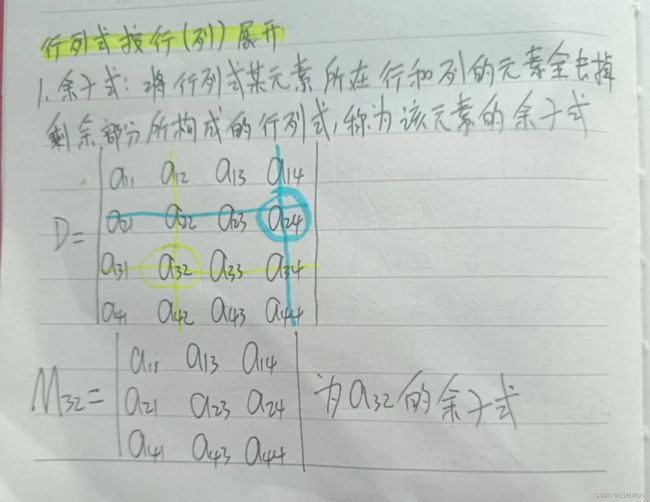 行列式按行(列)展开
1.余子式:将行列式某元素所在行和列的元素全去掉
剩余部分所构成的行列式,称为该元素的余子式
a11 a12 a13 a14
D= a21 a22 a23 a24
a31 a32 a33 a34
a41 a42 a43 a44
a11 a13 a14
M32= a21 a23 a24 为a32的余子式
a41 a43 a44